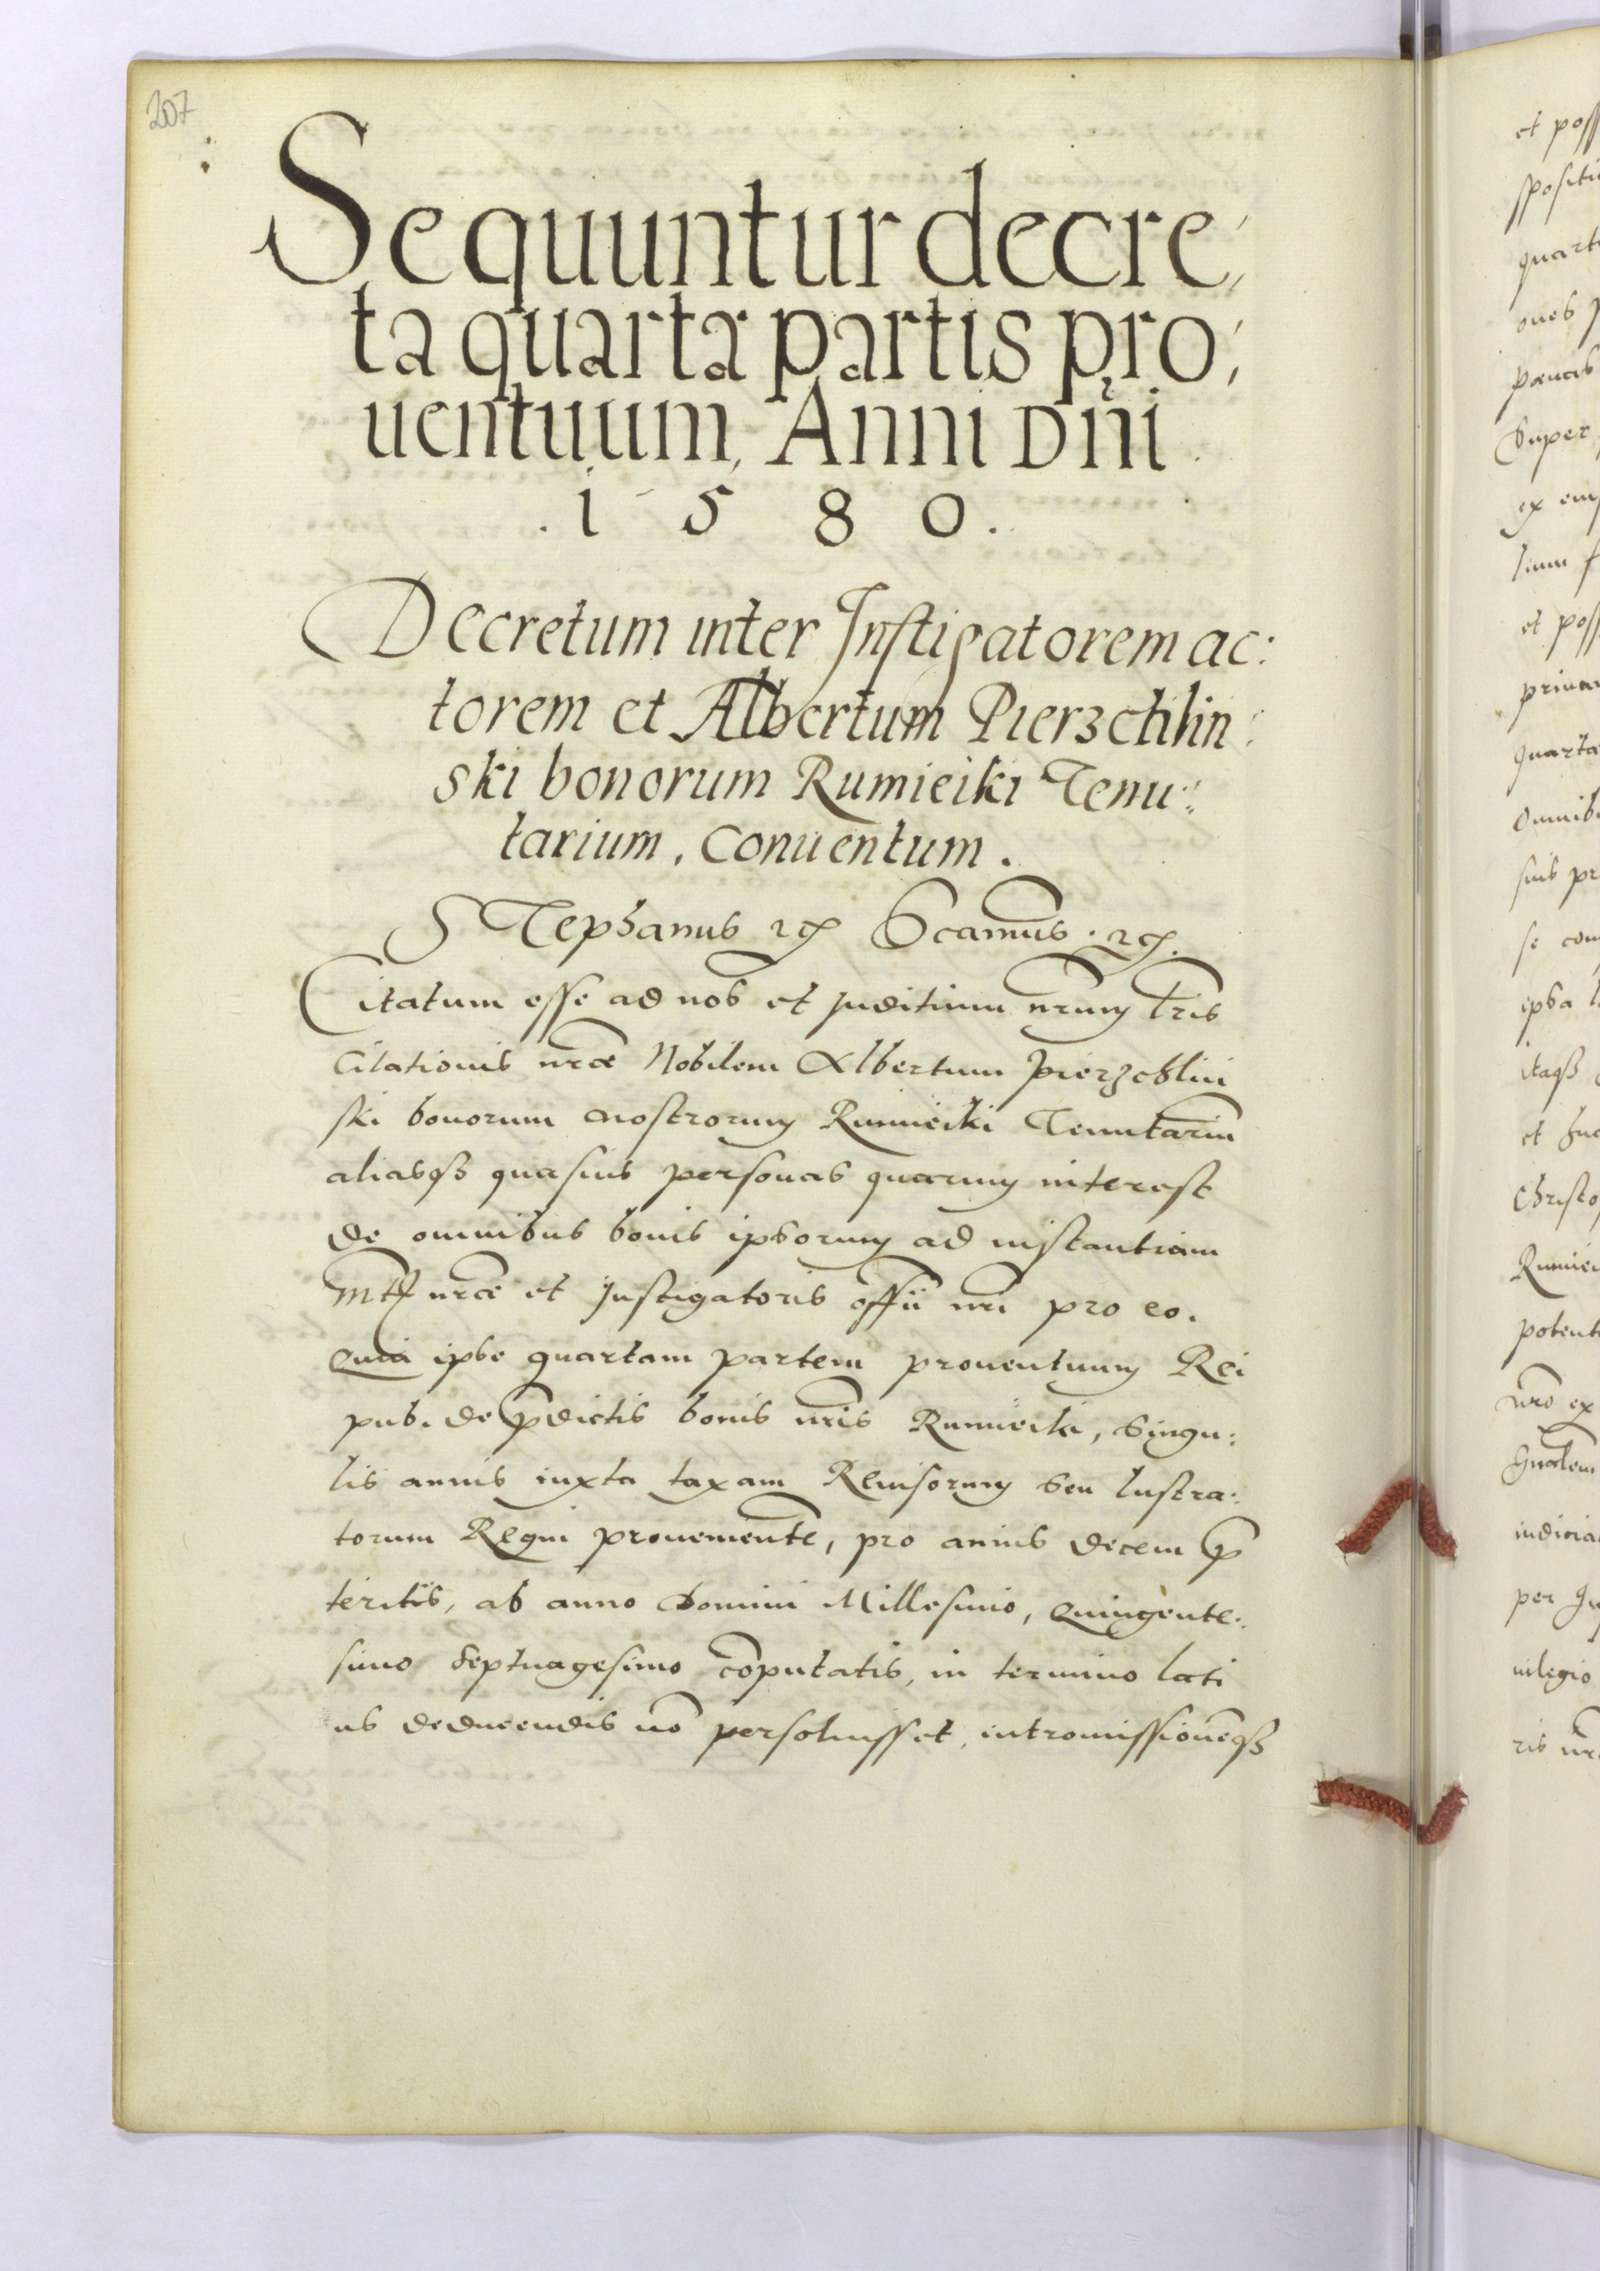 207
Sequuntur decre,
ta quartæ partis pro,
uentuum, Anni Dñi
. 1 5 8 0 .
Decretum inter Instigatorem ac:
torem et Albertum Pierzchlin:
ski bonorum Rumieiki Tenu:
tarium, Conuentum.
Stephanus etc Scamus. etc.
Citatum esse ad nos et Juditium nrum lris
Citationis nræ Nobilem Albertum Pierzchlin
ski bonorum nostrorum Rumieiki Tenutariu
aliasqz quasuis personas quarum interest
de omnibus bonis ipsorum ad instantiam
Mttis nræ et Instigatoris offii nri pro eo.
Quia ipse quartam partem prouentuum Rei
pub. de pdictis bonis nris Rumieiki, singu:
lis annis iuxta taxam Reuisorum seu lustra:
torum Regni prouenientē, pro annis decem p
teritis, ab anno Domini Millesimo, Quingente:
simo septuagesimo cōputatis, in termino lati
us deducendis nō persoluisset, intromissionēqz
et poss
quart
Super
et poss
quarta
suis pr
ipsa
Christo
Rumiei
potent
per
uilegio